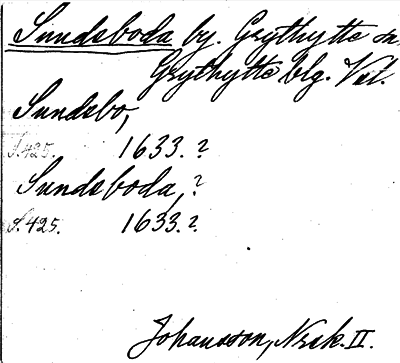 Sundsboda by. Grythytte sn.
Grythytte blg. Vstl.
Sundsbo,
S. 425. 1633.?
Sundsboda,?
S. 425. 1633.?
Johansson, Nrsk. II.